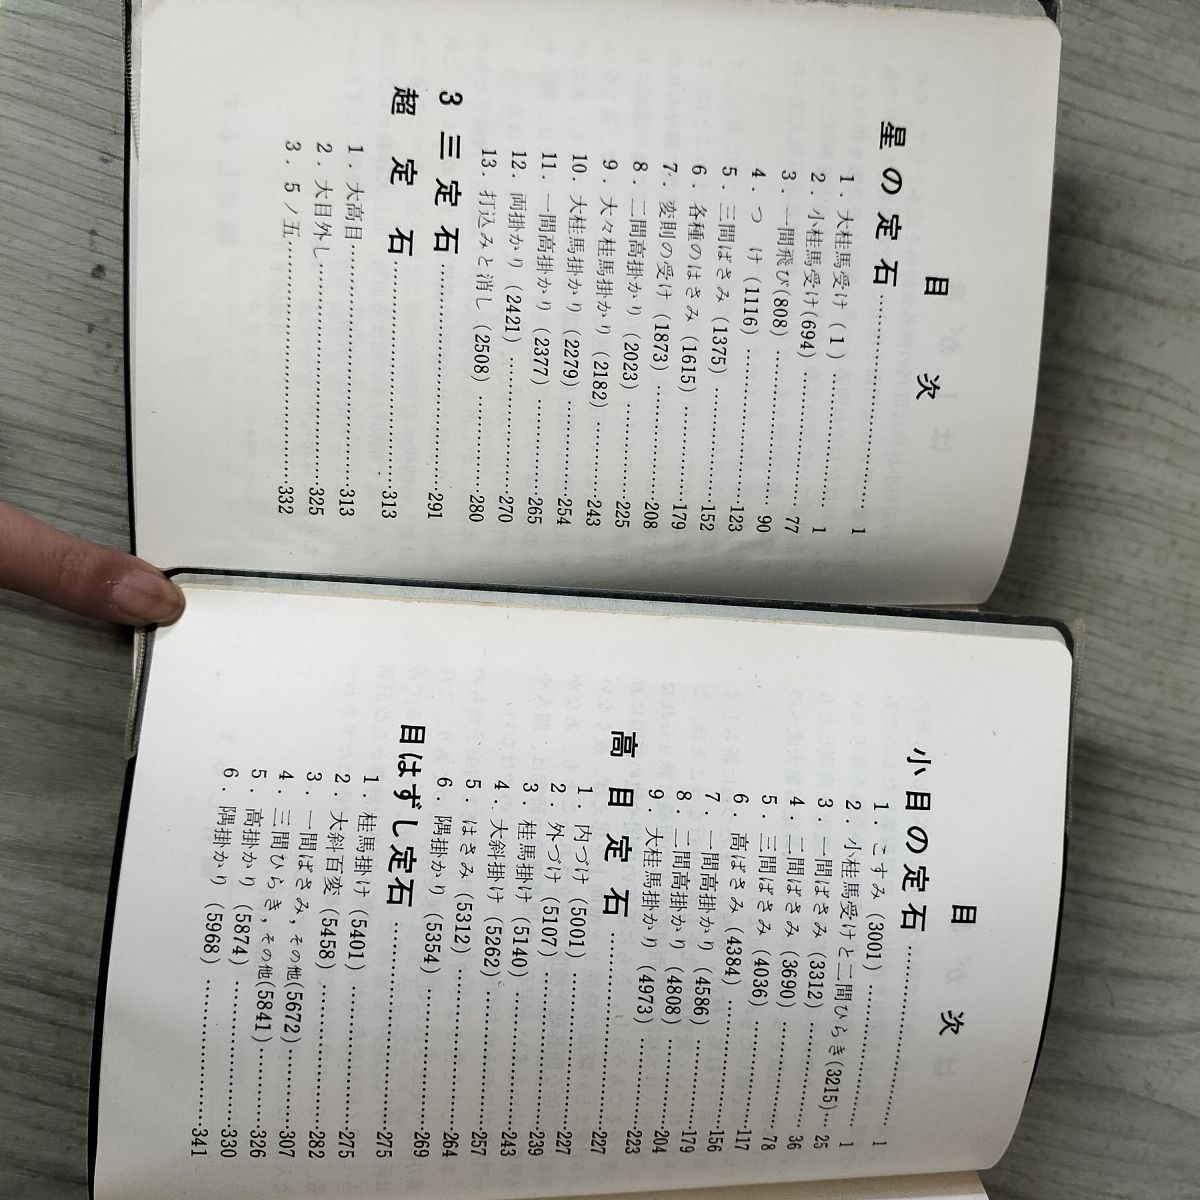 目 次
星の定石 1
1. 大桂馬受け (1) 1
2. 小桂馬受け (694) 77
3. 一間飛び (808) 90
4. つけ (1116) 123
5. 三間ばさみ (1375) 152
6. 各種のはさみ (1615) 179
7. 変則の受け (1873) 208
8. 二間高掛かり (2023) 225
9. 大々桂馬掛かり (2182) 243
10. 大桂馬掛かり (2279) 254
11. 一間高掛かり (2377) 265
12. 両掛かり (2421) 270
13. 打込みと消し (2508) 280
3 三定石 291
超定石 313
1. 大高目 313
2. 大目外し 325
3. 5ノ五 332
目 次
小目の定石 1
1. こすみ (3001) 1
2. 小桂馬受けと二間ひらき (3215) 25
3. 一間ばさみ (3312) 36
4. 二間ばさみ (3690) 78
5. 三間ばさみ (4036) 117
6. 高ばさみ (4384) 156
7. 一間高掛かり (4586) 179
8. 二間高掛かり (4808) 204
9. 大桂馬掛かり (4973) 223
高目定石 227
1. 内づけ (5001) 227
2. 外づけ (5107) 239
3. 桂馬掛け (5140) 243
4. 大斜掛け (5262) 257
5. はさみ (5312) 264
6. 隅掛かり (5354) 269
目はずし定石 275
1. 桂馬掛け (5401) 275
2. 大斜百変 (5458) 282
3. 一間ばさみ, その他 (5672) 307
4. 三間ひらき, その他 (5841) 326
5. 高掛かり (5874) 330
6. 隅掛かり (5968) 341